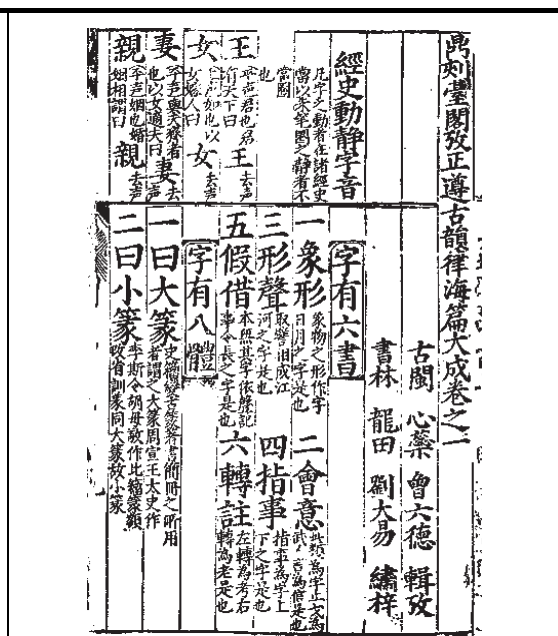 鼎刻臺閣攷正遵古韻律海篇大成卷之二
古閩 心藥 曾六德 輯攷
書林 龍田 劉大易 繡梓
經史動靜字音
凡字之動者在諸經史
當以朱筆圈之靜者不
當圈
也
王 平声君也君有天下曰 王 去声
女 以女婦人曰 女 去声
妻 平声與夫齊者也以女適夫曰 妻 去声
親 平声姻也婚姻相謂曰 親 去声
字有六書
一象形 象物之形作字日月之字是也 二會意 此類為字止戈為武人言為信是也
三形聲 取譬相成江河之字是也 四指事 指事為字上下之字是也
五假借 本無其字依聲託事令長之字是也 六轉註 左轉為考右轉為老是也
字有八體
一曰大篆 簡冊之所用者謂之大篆周宣王太史作
二曰小篆 李斯令胡母敬作比籀篆頗改省訓篆同大篆故小篆